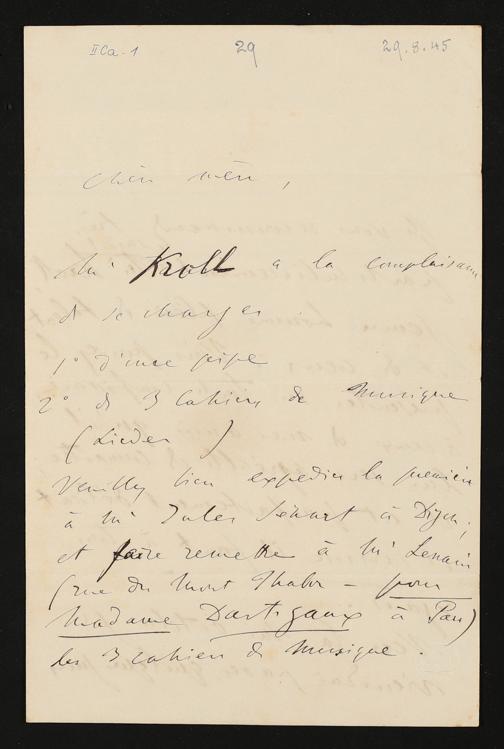 IICa-1 29 29.8.45
Chère mère,
Mr Kroll a la complaisance
de se charger
1° d'une pipe
2° de 3 Cahiers de Musique
(Lieder)
Veuillez bien expédier la première
à Mr Jules Sénart à Dijon,
et faire remettre à Mr Lenain
(rue du Mont Thabor - pour
Madame Dartigaux à Pau)
les 3 cahiers de musique.